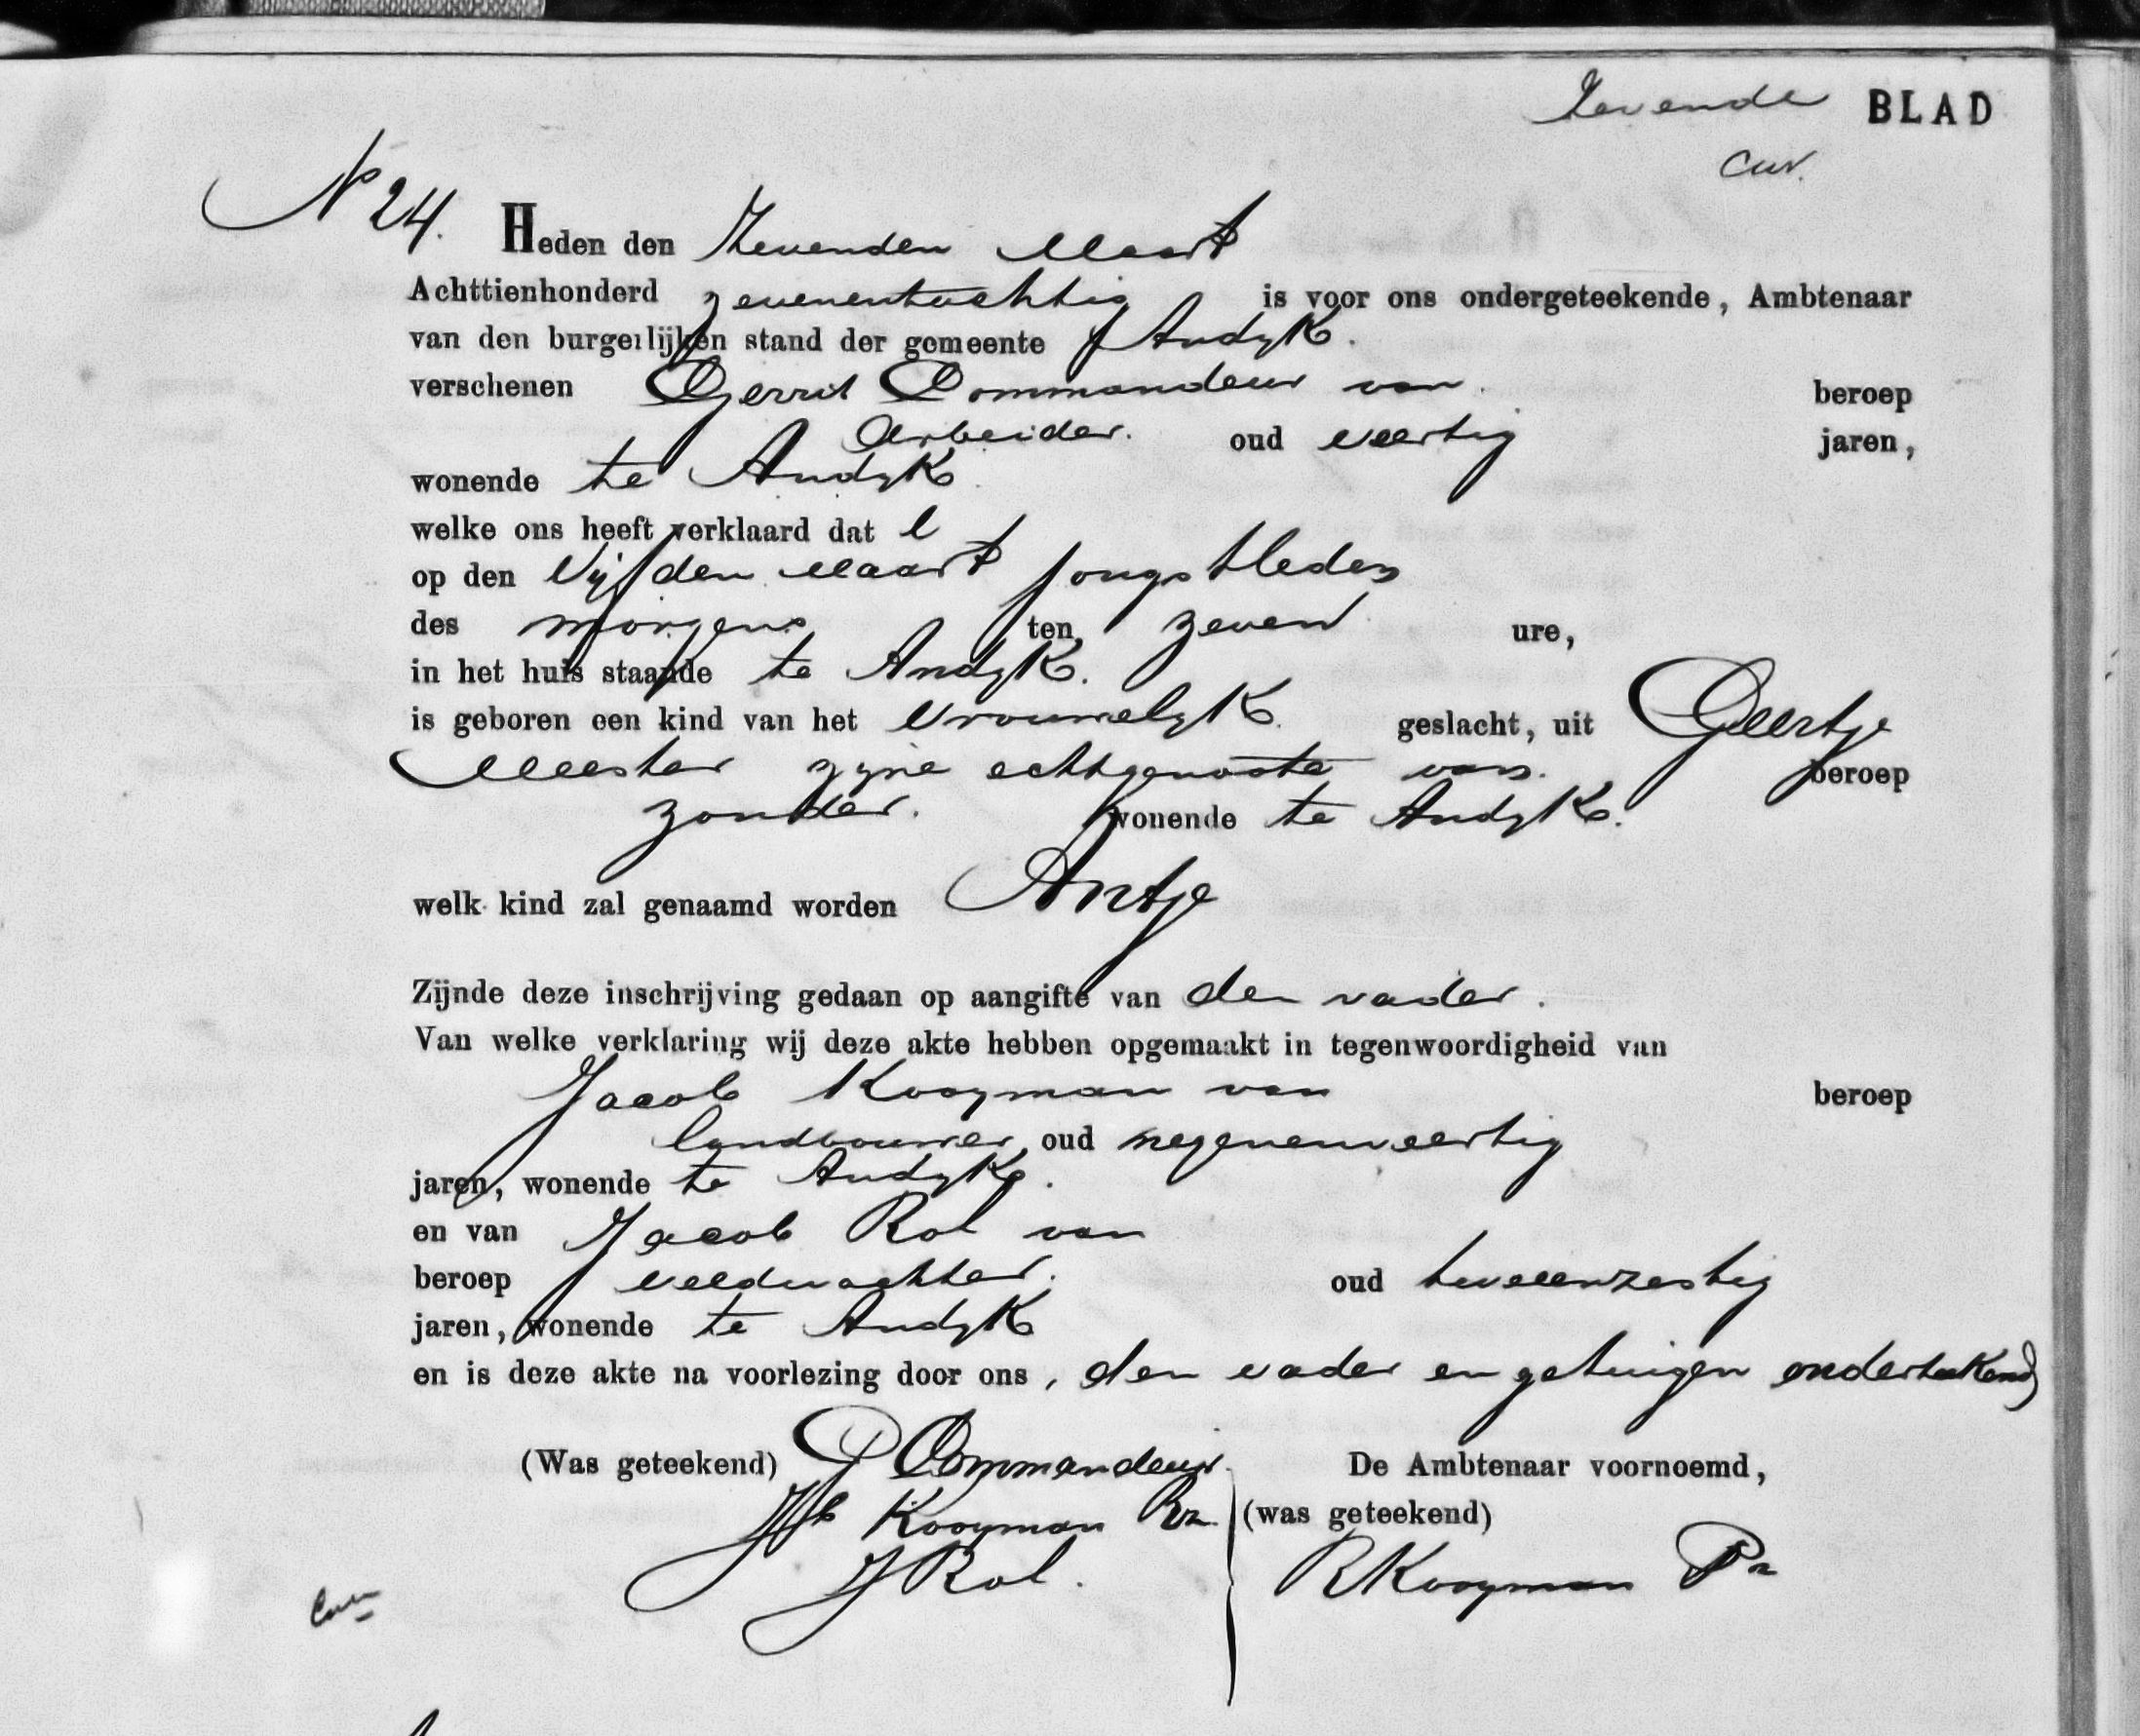 Zevende BLAD
No 24. Heden den Zevenden Maart
Achttienhonderd zevenentachtig is voor ons ondergeteekende, Ambtenaar
van den burgerlijken stand der gemeente Andyk.
verschenen Gerrit Commandeur van beroep
Arbeider. oud veertig jaren,
wonende te Andyk
welke ons heeft verklaard dat
op den Vijfden Maart jongstleden
des morgens ten zeven ure,
in het huis staande te Andyk.
is geboren een kind van het vrouwelyk geslacht, uit Geertje
Meester zyne echtgenoote van beroep
zonder. wonende te Andyk.
welk kind zal genaamd worden Antje
Zijnde deze inschrijving gedaan op aangifte van den vader.
Van welke verklaring wij deze akte hebben opgemaakt in tegenwoordigheid van
Jacob Kooyman van beroep
landbouwer, oud negenenveertig
jaren, wonende te Andyk.
en van Jacob Rol van
beroep veldwachter. oud tweeenzestig
jaren, wonende te Andyk
en is deze akte na voorlezing door ons, den vader en getuigen onderteekend
(Was geteekend) G Commandeur. De Ambtenaar voornoemd,
Jb Kooyman Rz. (was geteekend)
J Rol. R Kooyman Pz